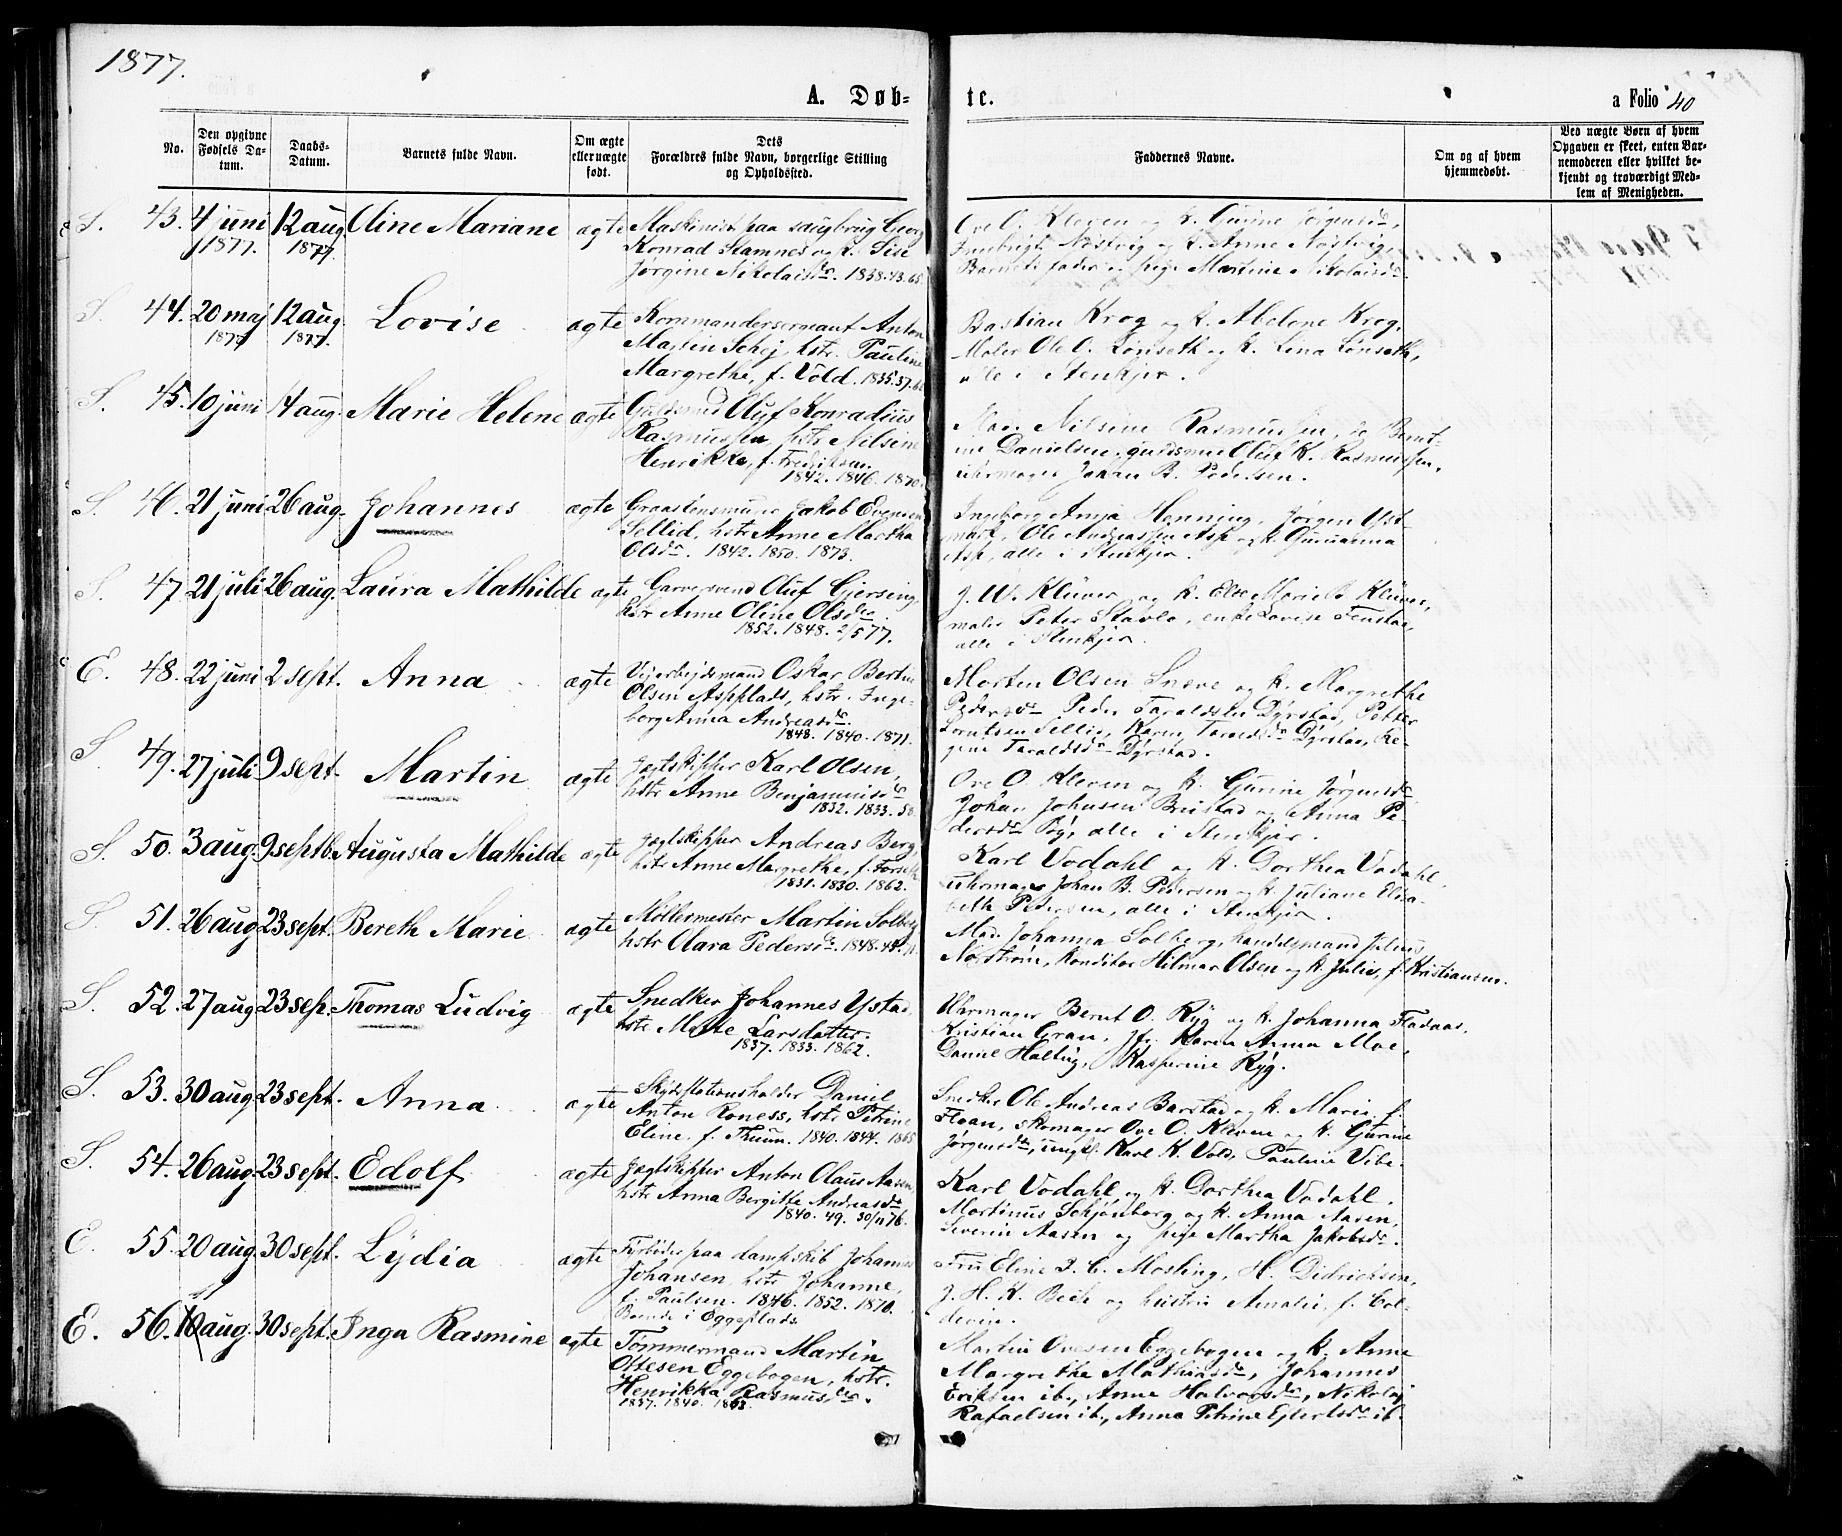 1877.
A. Døb-
te.
a Folio 40
No.
Den opgivne Fødsels Datum.
Daabs-Datum.
Barnets fulde Navn.
Om ægte eller uægte født.
Dets Forældres fulde Navn, borgerlige Stilling og Opholdssted.
Faddernes Navne.
Om og af hvem hjemmedøbt.
Ved uægte Børn af hvem Opgaven er skeet, enten Barnemoderen eller hvilket bekjendt og troværdigt Medlem af Menigheden.
S. 43. 4 juni 1877. 12 aug. 1877. Oline Mariane ægte
Maskinist paa saugbrug Georg
Konrad Stamnes og k. Sise
Jørgine Nikolaisdr. 1838.43.65.
Ove O. Kleven og k. Gurine Jørgensdr,
Ingebrigt Nøstvig og k. Anne Nøstvig,
Barnets fader og pige Martine Nikolaisdr
S. 44. 20 maj 1877 12 aug. 1877. Lovise ægte
Kommandersergeant Anton
Martin Schej, hstr. Pauline
Margrethe, f. Vold. 1835.37.
Bastian Krog og k. Abelone Krog,
Maler Ole O. Lønseth og k. Lina Lønseth,
alle i Stenkjær.
S. 45. 10 juni 14 aug. Marie Helene ægte
Guldsmed Oluf Konradius
Rasmussen, hstr Nilsine
Henrikke, f. Fredriksen.
1842. 1846. 1870.
Mad. Nilsine Rasmussen, Bernt-
ine Danielsen, guldsmed Oluf K. Rasmussen,
uhrmager Johan B. Pedersen.
S. 46. 21 juni 26 aug. Johannes ægte
Graastensmurer Jakob Evensen
Sellid, hstr Anne Martha
Olsdr. 1842. 1850. 1873.
Ingeborg Anna Henning, Jørgen Yst-
mark, Ole Andreassen Asp og k. Gurianna
Asp, alle i Stenkjær.
S. 47. 21 juli 26 aug. Laura Mathilde ægte
Garversvend Oluf Gjersing,
hstr Anne Oline Olsdr.
1852. 1848. 2/5 77.
J. W. Klüver og k. Else Marie Klüver,
maler Peter Stavlo, enke Lovise Fenstad,
alle i Stenkjær.
E. 48. 22 juni 2 sept. Anna ægte
Vejarbejdsmand Oskar Bertin
Olsen Aspplads, hstr. Inge-
borg Anna Andreasdr.
1848. 1840. 1871.
Morten Olsen Sneve og k. Margrethe
Pedersdr Peder Taraldsen Dyrstad, Petter
Lorntsen Sellid, Karen Taraldsdr Dyrstad, Re-
gine Taraldsdr Dyrstad.
S. 49. 27 juli 9 sept. Martin ægte
Jægtskipper Karl Olsen,
hstr Anne Benjaminsdr
1832. 1833. 58.
Ove O. Kleven og k. Gurine Jørgensdr
Johan Johnsen Brustad og Anna Pe-
dersdr By, alle i Stenkjær.
S. 50. 3 aug. 9 septb. Augusta Mathilde ægte
Jægtskipper Andreas Berg,
hstr Anne Margrethe, f. Forseth
1831. 1830. 1862.
Karl Vodahl og k. Dorthea Vodahl,
uhrmager Johan B. Pedersen og k. Juliane Elisa-
beth Pedersen, alle i Stenkjær.
S. 51. 26 aug 23 sept. Bereth Marie ægte
Møllermester Martin Solberg
hstr Olara Pedersdr. 1848.48.
Mad. Johanna Solberg, handelsmand Julius
Norstrøm, konditor Hilmar Olsen og k. Julie, f. Kristiansen.
S. 52. 27 aug 23 sep. Thomas Ludvig ægte
Snedker Johannes Ystad
hstr Mette Larsdatter.
1837. 1833. 1862.
Uhrmager Bernt O. Ryg og k. Johanna Fladaas.
Kristian Gran, jfr. Karen Anna Moe,
Daniel Halling, Kasperine Ryg.
S. 53. 30 aug 23 sept. Anna ægte
Skydsstationsholder Daniel
Anton Roness, hstr Petrine
Eline, f. Thuun. 1840. 1844. 1865
Snedker Ole Andreas Barstad og k. Marie f.
Floan, skomager Ove O. Kleven og k. Gurine
Jørgensdr, ungk. Karl K. Vold, Pauline Vibe.
S. 54. 26 aug. 23 sept. Edolf ægte
Jægtskipper Anton Olaus Aasen
hstr Anna Bergitte Andreasdr
1840. 49. 30/11 76.
Karl Vodahl og k. Dorthea Vodahl,
Martinus Schjønberg og k. Anna Aasen,
Severin Aasen og pige Martha Jakobsdr.
E. 55. 20 aug. 30 sept. Lydia ægte
Fyrbøder paa dampskib Johannes
Johansen, hstr Johanne,
f. Paulsen. 1846. 1852. 1870.
Boende i Eggeplads
Fru Eline J. C. Mosling, H. Didrichsen,
J. H. K. Beck og hustru Amalie, f. Col-
devin.
E. 56. 10 aug. 30 sept. Inga Rasmine ægte
Tømmermand Martin
Ottesen Eggebogen, hstr.
Henrikka Rasmusdr.
1837. 1840. 1863.
Martin Ovesen Eggebogen og k. Anne
Margrethe Mathiasdr, Johannes
Eriksen ib., Anne Halvorsdr, Nikolaj
Rafaelsen ib., Anna Petrine Ejlertsdr ib.